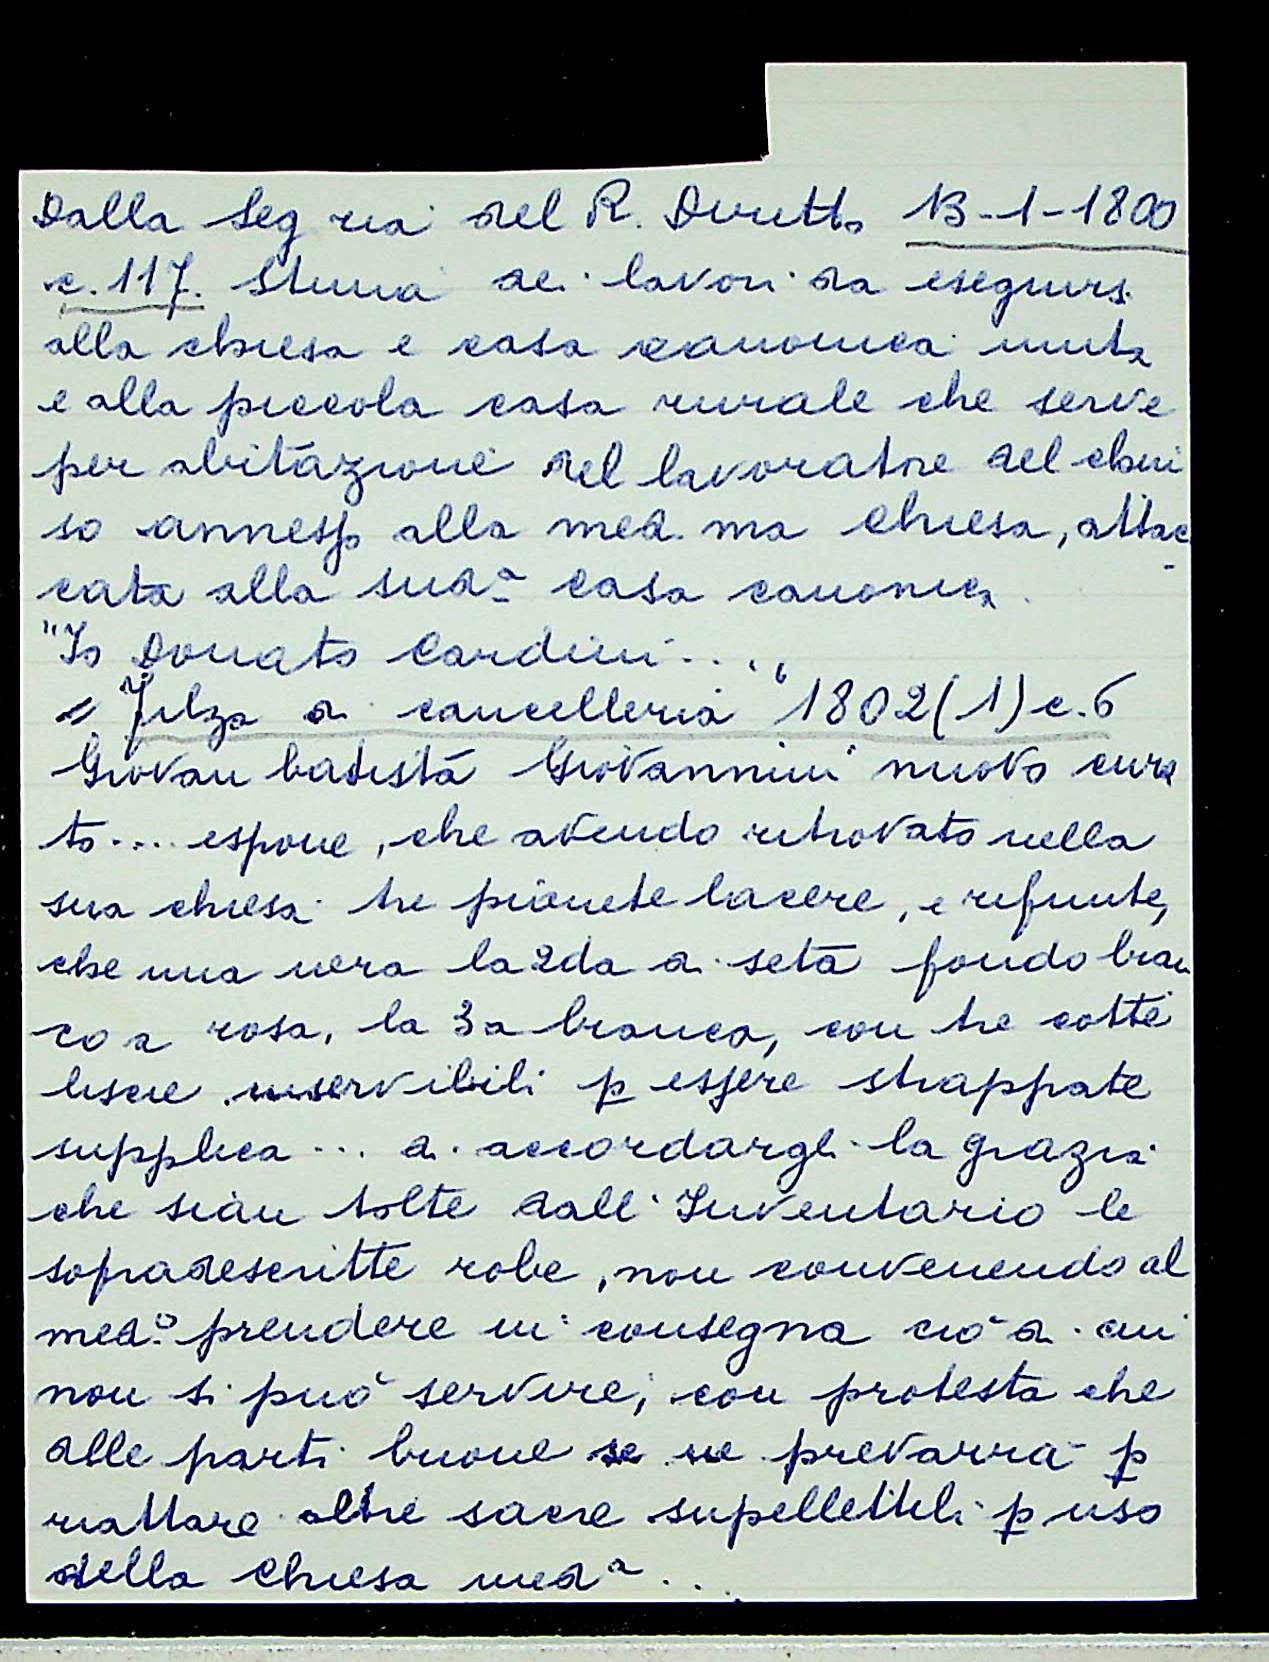 Dalla Seg ria del R. Diritto 13-1-1800
c. 117. Stima dei lavori da eseguirsi
alla chiesa e casa canonica unita
e alla piccola casa rurale che serve
per abitazione del lavoratore del chiu
so annesso alla med. ma Chiesa, attac
cata alla sud.a casa canonica.
"Io Donato Cardini....
" Filza di cancelleria "1802(1) c.6
Giovan batista Giovannini nuovo cura
to.... espone, che avendo ritrovato nella
sua chiesa tre pianete lacere, e rifinite,
che una nera la 2da di seta fondo bian
co a rosa, la 3a bianca, con tre cotte
liscie inservibili p essere strappate
supplica ... di accordargli la grazia
che sian tolte dall'Inventario le
sopradescritte robe, non convenendo al
med.o prendere in consegna ciò di cui
non si può servire; con protesta che
alle parti buone se ne prevarrà p
riattare altre sacre supellettili p uso
della Chiesa med.a ...